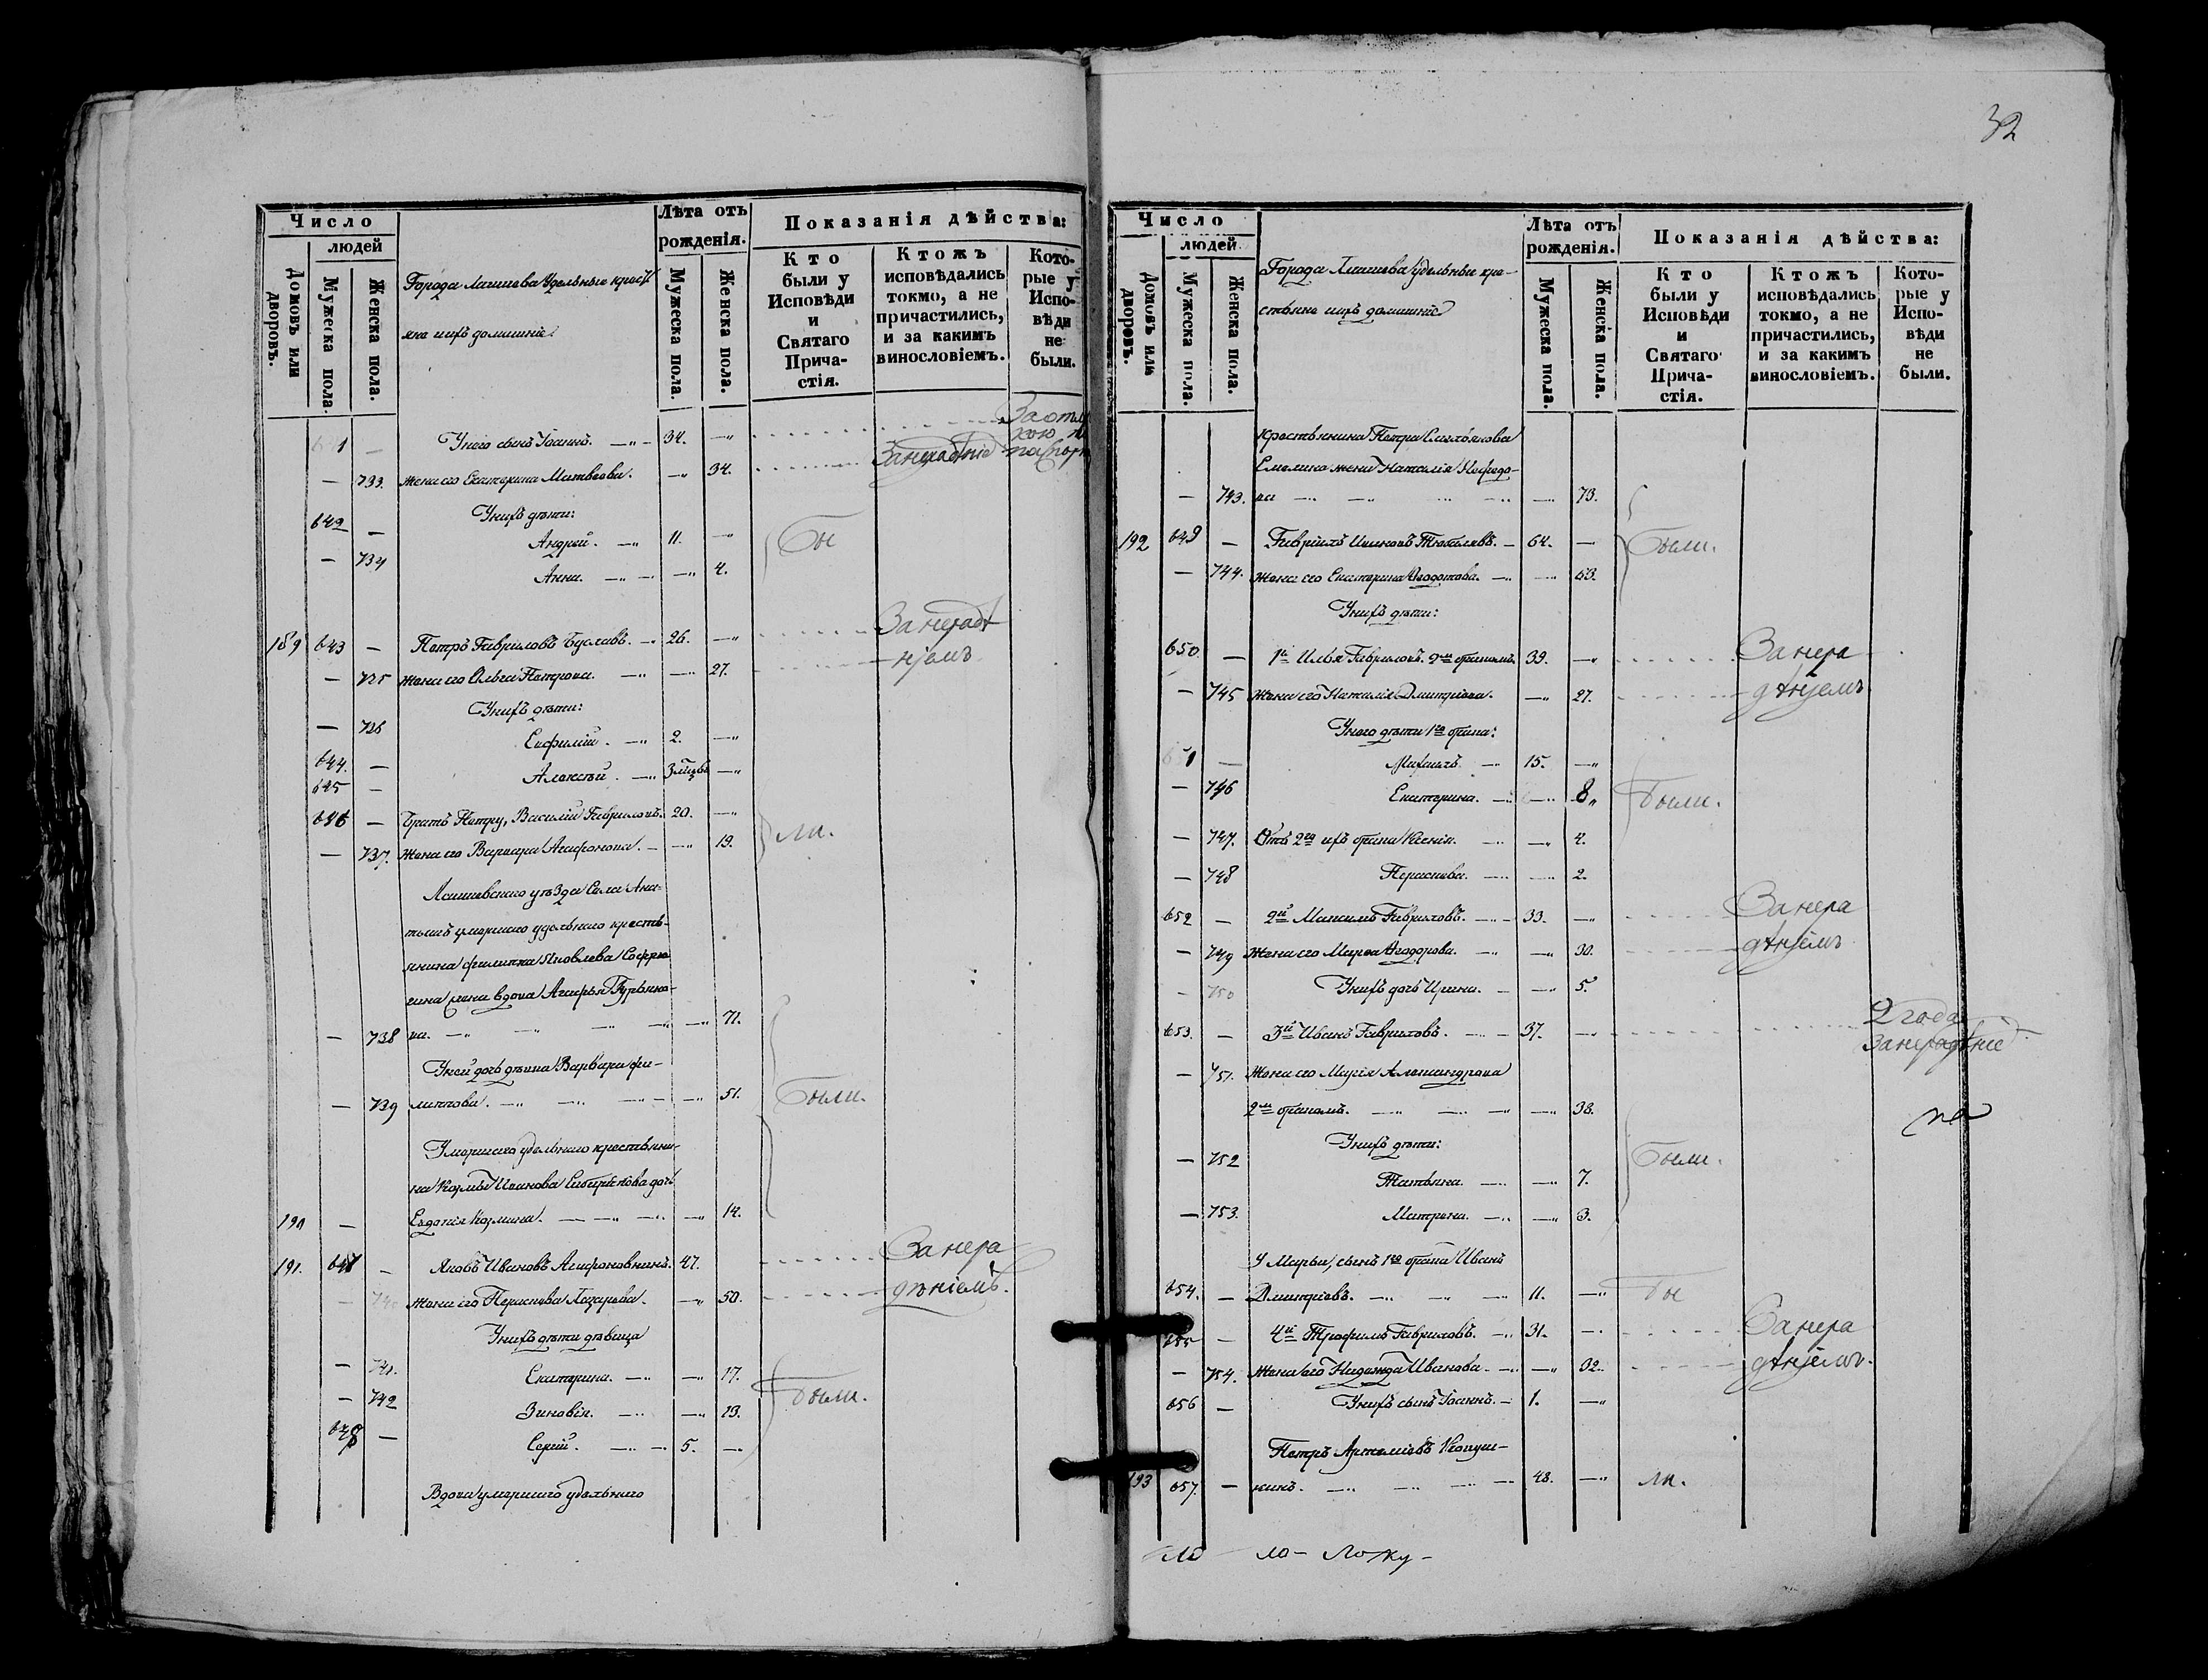 32
Число
людей
Домовъ или дворовъ.
Мужеска пола.
Женска пола.
Города Лаишева Удельные кресть
яне ихъ домашніе
Лѣта отъ рожденія.
Мужеска пола.
Женска пола.
Показанія дѣйства:
Кто были у Исповѣди и Святаго Прича-стія.
Ктожъ исповѣдались токмо, а не причастились, и за какимъ винословіемъ.
Кото-рые у Испо-вѣди не были.
1 — У него сынъ Іоаннъ. 34.
За нерадѣніе
— 733. Жена его Екатерина Матвѣева. — 34.
У нихъ дѣти:
642 — Андрей. 11. Бы
— 734 Анна. — 4.
189 643 — Петръ Гавриловъ 26. За нерадѣ
— 735 жена его Ольга Петрова. — 27. ніемъ
У нихъ дѣти:
— 736
Евфимій. 2.
644. — Алексѣй. 3 мѣсяц.
645 —
646 — Братъ Петру, Василій Гавриловъ. 20.
— 737. Жена его Варвара Агафонова. — 19. ли.
Лаишевскаго уѣзда Села Ана-
тышъ умершаго удѣльнаго кресть-
янина Филиппа Яковлева
вдова Агафья Гурьяно-
— 738 ва. — 71.
У ней дочь дѣвица Варвара Фи-
— 739 липпова. — 51. Были.
Умершаго удѣльнаго крестьяни-
на Козьмы Иванова дочь
190 — Евдокія Козмина. — 14.
191. 647 — Яковъ Ивановъ Агафоновнинъ. 47. За нера
— 740 Жена его Параскева Лазарева. — 50. дѣніемъ.
У нихъ дѣти дѣвица
— 741. Екатерина. — 17.
— 742 Зиновія. — 13. Были.
648 — Сергій. 5. —
Вдова умершаго удѣльнаго
Число
людей
Домовъ или дворовъ.
Мужеска пола.
Женска пола.
Города Лаишева удѣльные кре-
стьяне ихъ домашніе
Лѣта отъ рожденія.
Мужеска пола.
Женска пола.
Показанія дѣйства:
Кто были у Исповѣди и Святаго Прича-стія.
Ктожъ исповѣдались токмо, а не причастились, и за какимъ винословіемъ.
Кото-рые у Испо-вѣди не были.
крестьянина Петра
жена Наталія
— 743. ва — 73.
192 649 — Гавріилъ Ивановъ 64. — Были.
— 744. Жена его Екатерина Ѳеодотова. — 63.
У нихъ дѣти:
650. — 1й Илья Гавриловъ. 2мъ бракомъ. 39. — За нера
— 745 Жена его Наталія Дмитріева. — 27. дѣніемъ
У него дѣти 1го брака:
1 — Михаилъ. 15. —
— 746 Екатерина. — 8 Были.
— 747. Отъ 2го ихъ брака Ксенія. — 4.
— 748 Параскева. — 2.
652 — 2й Максимъ Гавриловъ. 33. — За нера
— 749 Жена его Марѳа Ѳеодорова. — 30. дѣніемъ
— 750 У нихъ дочь Ирина. — 5.
653. — 3й Иванъ Гавриловъ. 37. — 2 года
За нерадѣніе
— 751. Жена его Марія Александрова
2мъ бракомъ. — 38.
на
У нихъ дѣти:
— 752 Татьяна. — 7. Были.
— 753. Матрона. — 3.
У Марьи, сынъ 1го брака Иванъ
654. — Дмитріевъ. 11. — Бы
655 — 4й Трофимъ Гавриловъ. 31. — За нера
— 754. Жена его Надежда Иванова. — 32. дѣніемъ.
656 — У нихъ сынъ Іоаннъ. 1. —
Петръ Артеміевъ
193 657. — кинъ. 48. — ли.
ло- ложу-